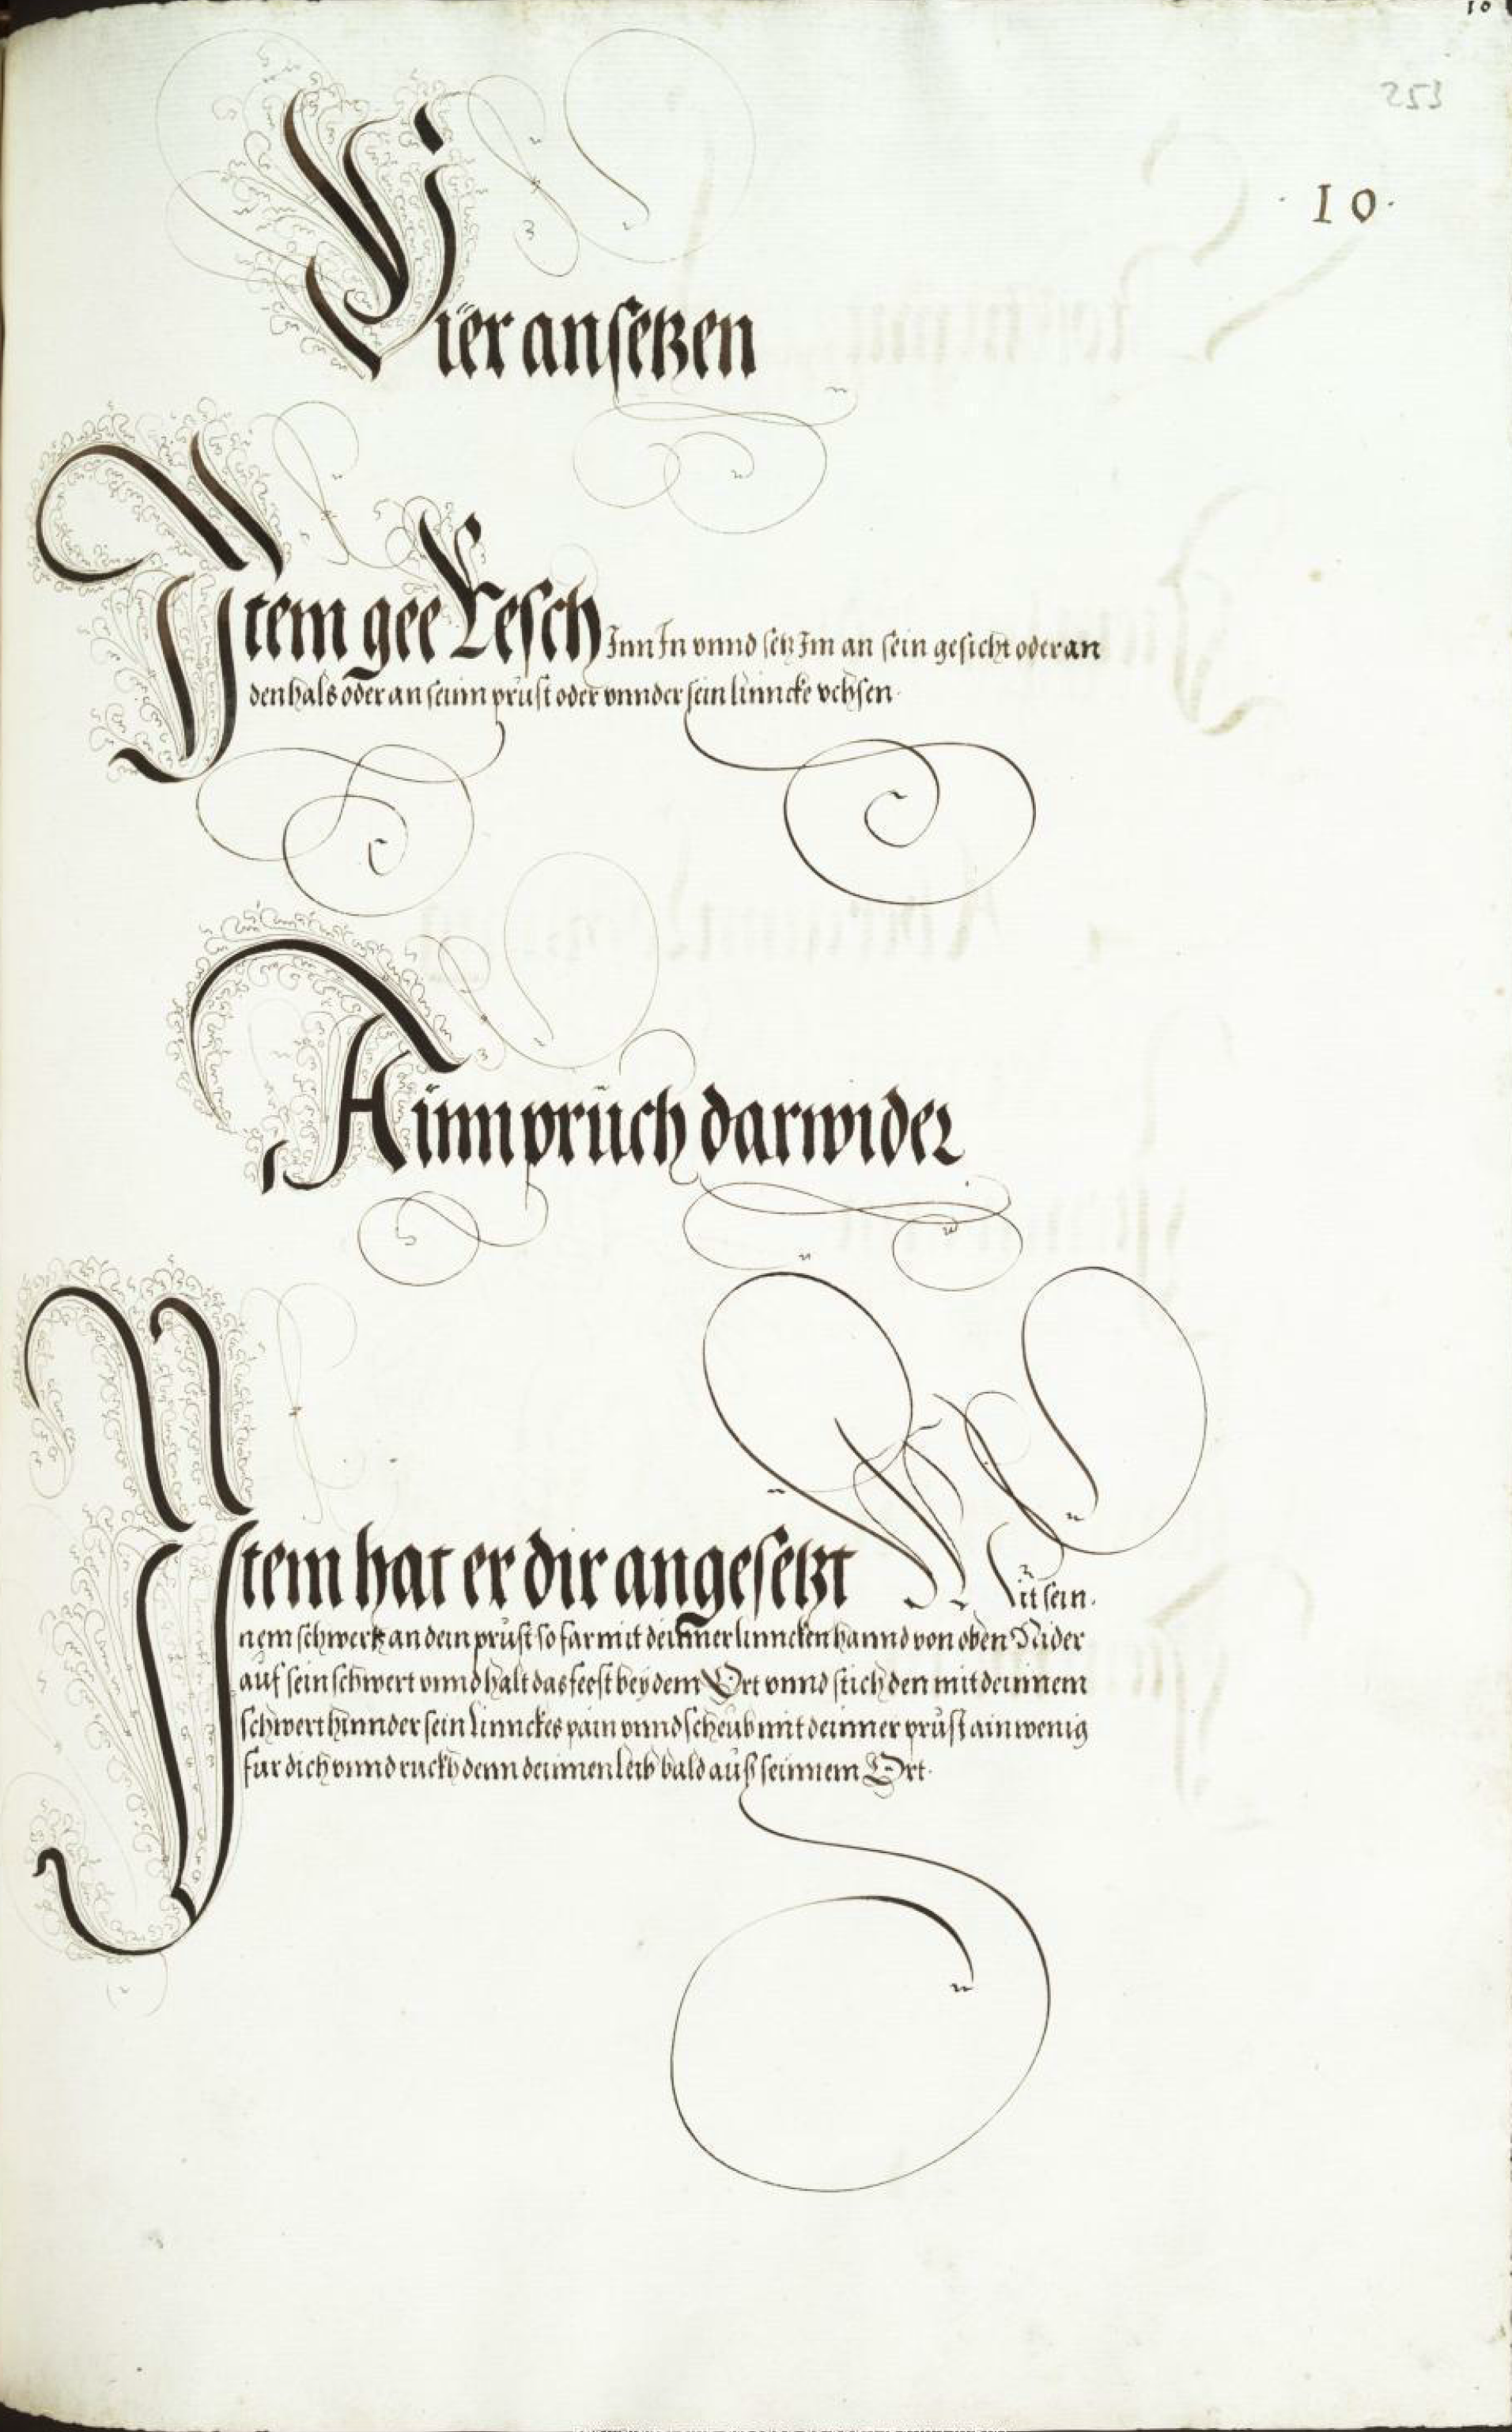 10
253
· 10 ·
Vier ansetzen
Item gee Resch Inn In vnnd setz Im an sein gesicht oder an
den hals oder an seinn průst oder vnnder sein linncke vchsen.
Ainn prüch darwider
Item hat er dir angesetzt Mit sein.
nem schwert an dein průst so far mit deinner linncken hannd von oben Nider
auf sein schwert vnnd halt das feest bey dem Ort vnnd stich den mit deinnem
schwert hinnder sein linnckes pain vnnd scheub mit deinner průst ain wenig
fur dich vnnd ruckh denn deinnen leib bald auß seinnem Ort.